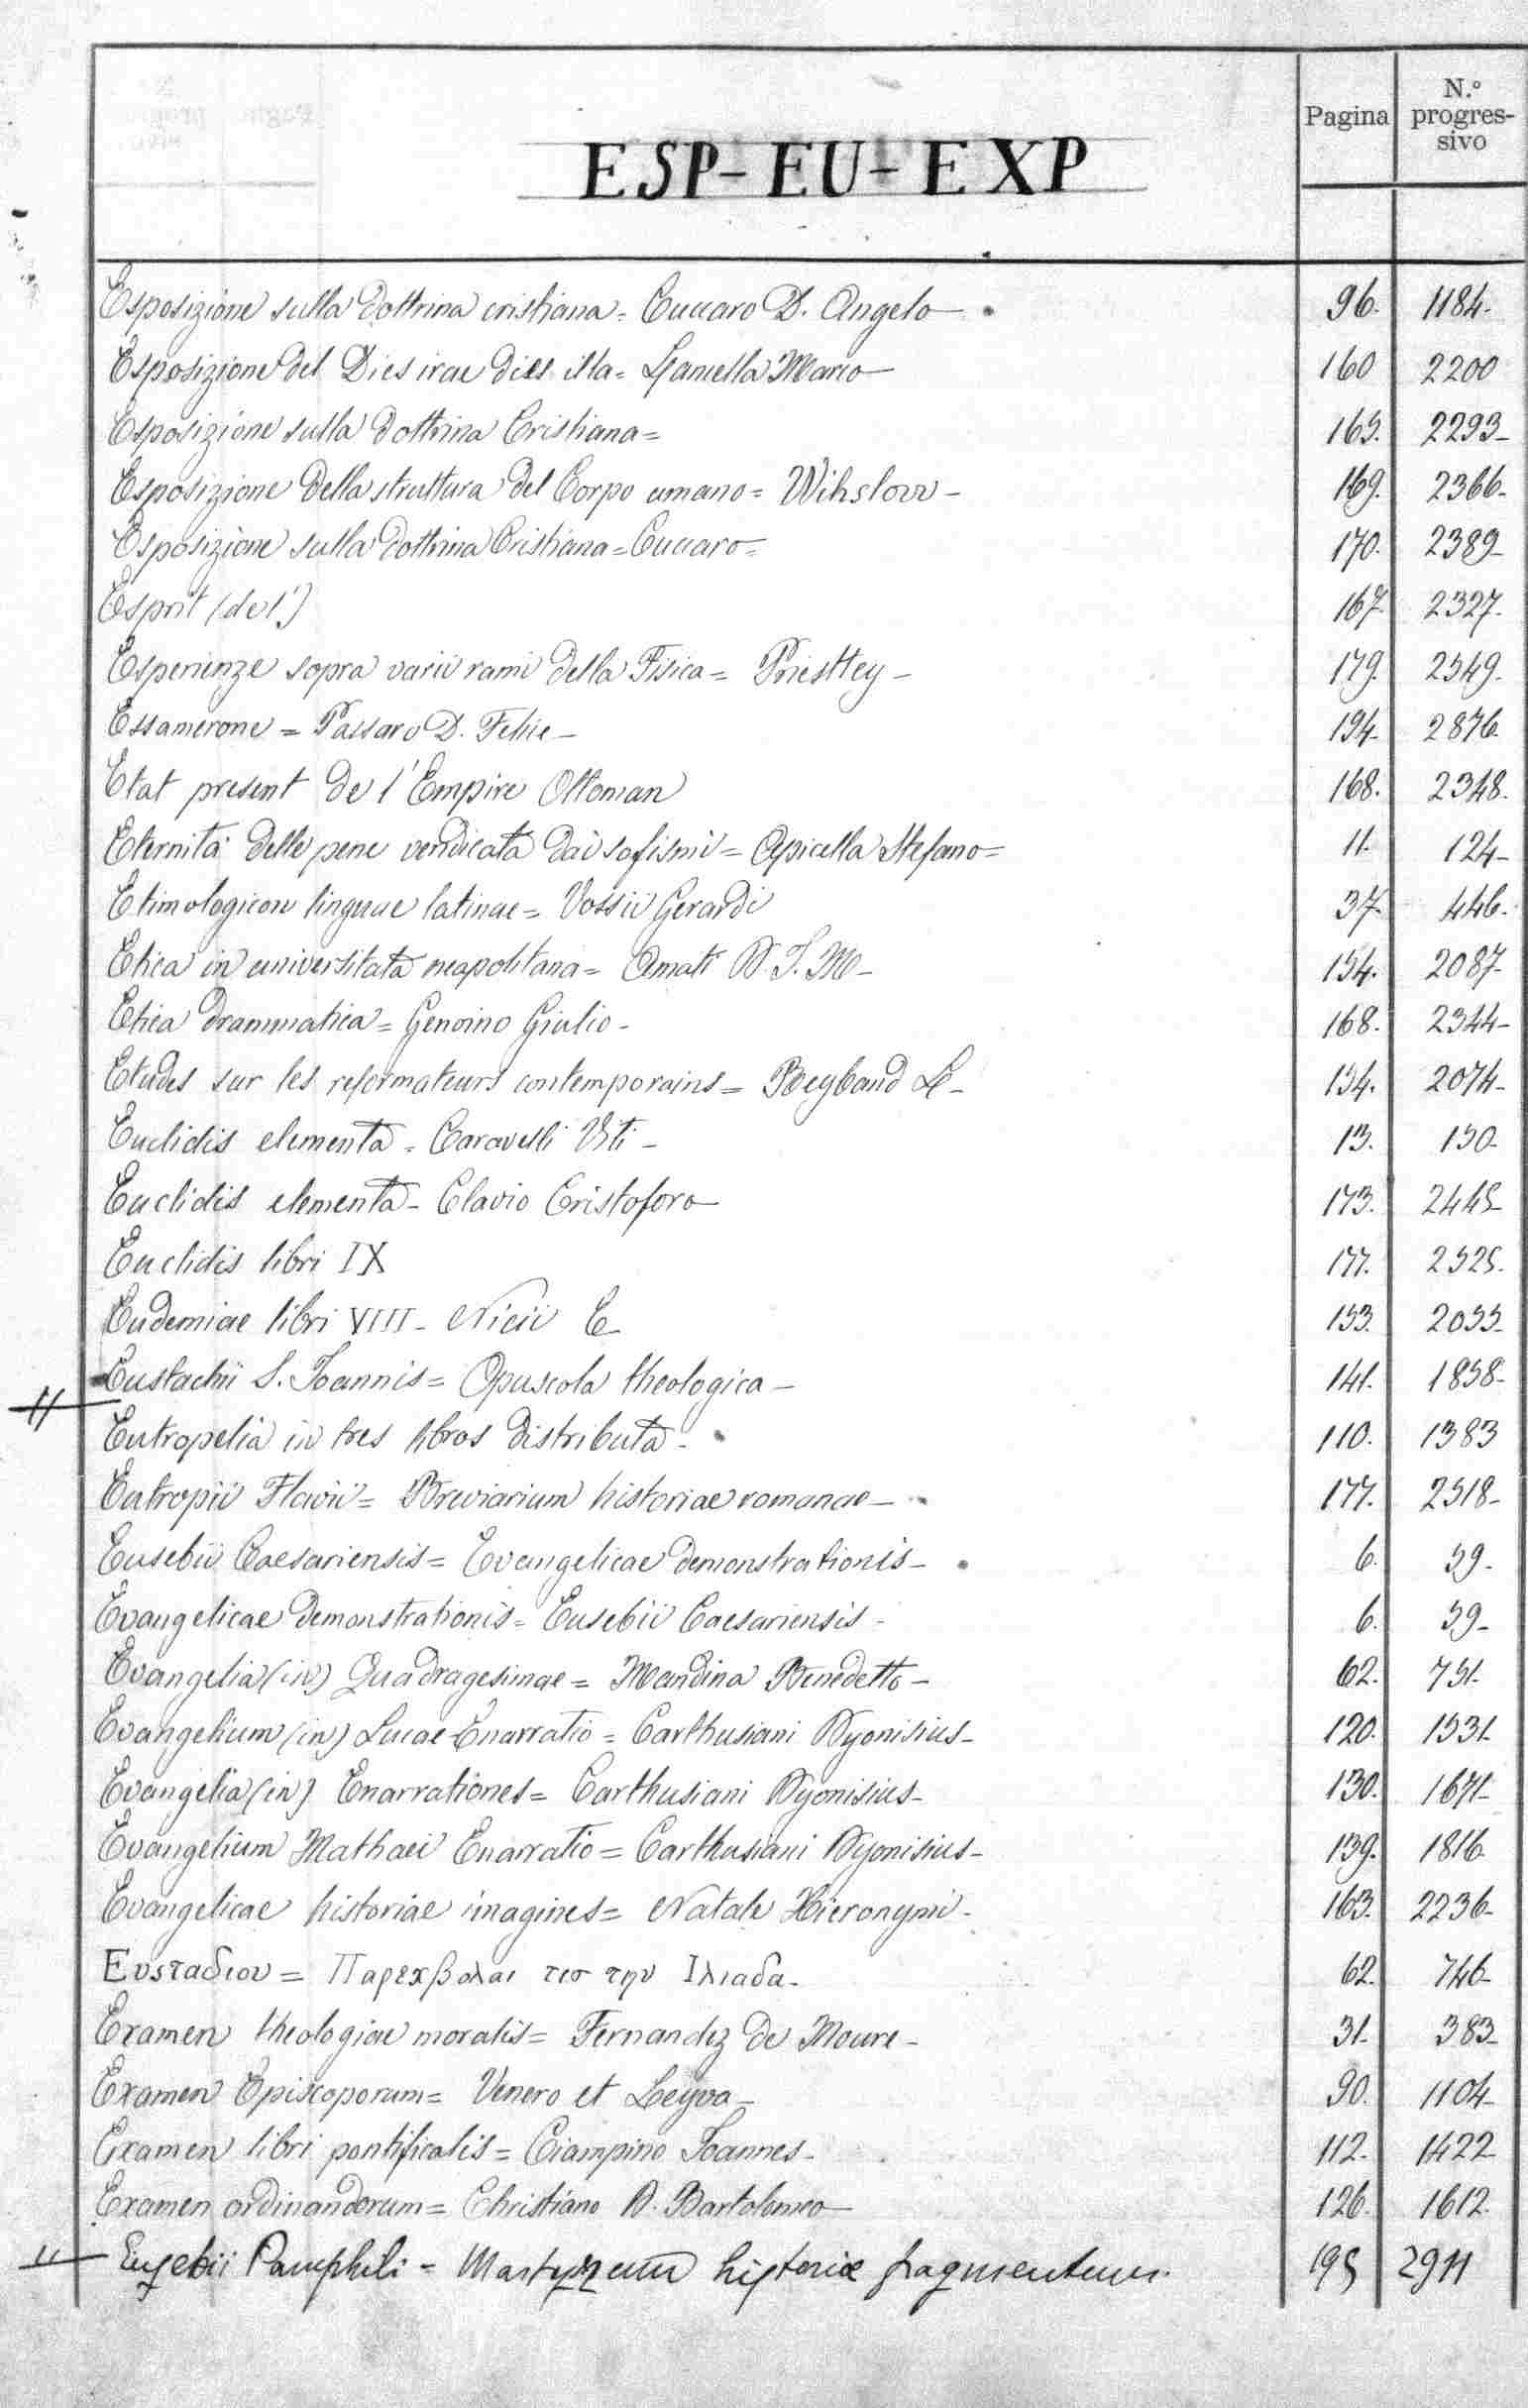 Pagina N.° progressivo
ESP-EU-EXP
Esposizione sulla dottrina cristiana = Cuccaro D. Angelo - 96. 1184.
Esposizione del Dies irae dies illa = Marco 160 2200
Esposizione sulla dottrina Cristiana = 165. 2293-
Esposizione della struttura del Corpo umano = Wihslovv - 169. 2366-
Esposizione sulla dottrina Cristiana = Cuccaro = 170. 2389-
Esprit (de l') 167. 2327.
Esperienze sopra varii rami della Fisica = Priesttey - 179. 2549.
Essamerone = Passaro D. Felice - 194. 2876.
Etat present de l'Empire Ottoman 168. 2348.
Eternità delle pene vendicata dai sofismi = Apicella Stefano = 11. 124-
Etimologicon linguae latinae = Vossii Gerardi 37. 446.
Etica in universitata neapolitana = Amati D. F. M - 154. 2087-
Etica drammatica = Genoino Giulio - 168. 2344-
Etudes sur les reformateurs contemporains = Reyband L - 154. 2074-
Euclidis elementa = Caravelli Viti - 13. 150-
Euclidis elementa - Clavio Cristoforo 173. 2445-
Euclidis libri IX 177. 2525.
Eudemiae libri VIII - Nicii E 153. 2055-
Eustachii S. Ioannis = Opuscola theologica - 141. 1858-
Eutropelia in tres libros distributa - 110. 1383
Eutropii Flavii = Breviarium historiae romanae - 177. 2518-
Eusebii Caesariensis = Evangelicae demonstrationis - 6. 59-
Evangelicae demonstrationis = Eusebii Caesariensis - 6. 59-
Evangelia (in) Quadragesimae = Mandina Benedetto - 62. 751-
Evangelium (in) Lucae Enarratio = Carthusiani Dyonisius - 120. 1531-
Evangelia (in) Enarrationes = Carthusiani Dyonisius - 130. 1671-
Evangelium Mathaei Enarratio = Carthusiani Dyonisius - 139. 1816-
Evangelicae historiae imagines = Natale Hieronymi - 163. 2236-
Ευσταδιου = Παρεχβολαι τισ την Ιλιαδα - 62. 746-
Examen theologiae moralis = Fernandez de Moure - 31. 383-
Examen Episcoporum = Venero et Leyva - 90. 1104-
Examen libri pontificalis = Ciampino Ioannes - 112. 1422
Examen ordinandorum = Christiano D. Bartolomeo 126. 1612.
Eusebii Pamphili = Martyrum historiæ fragmentum. 195 2911